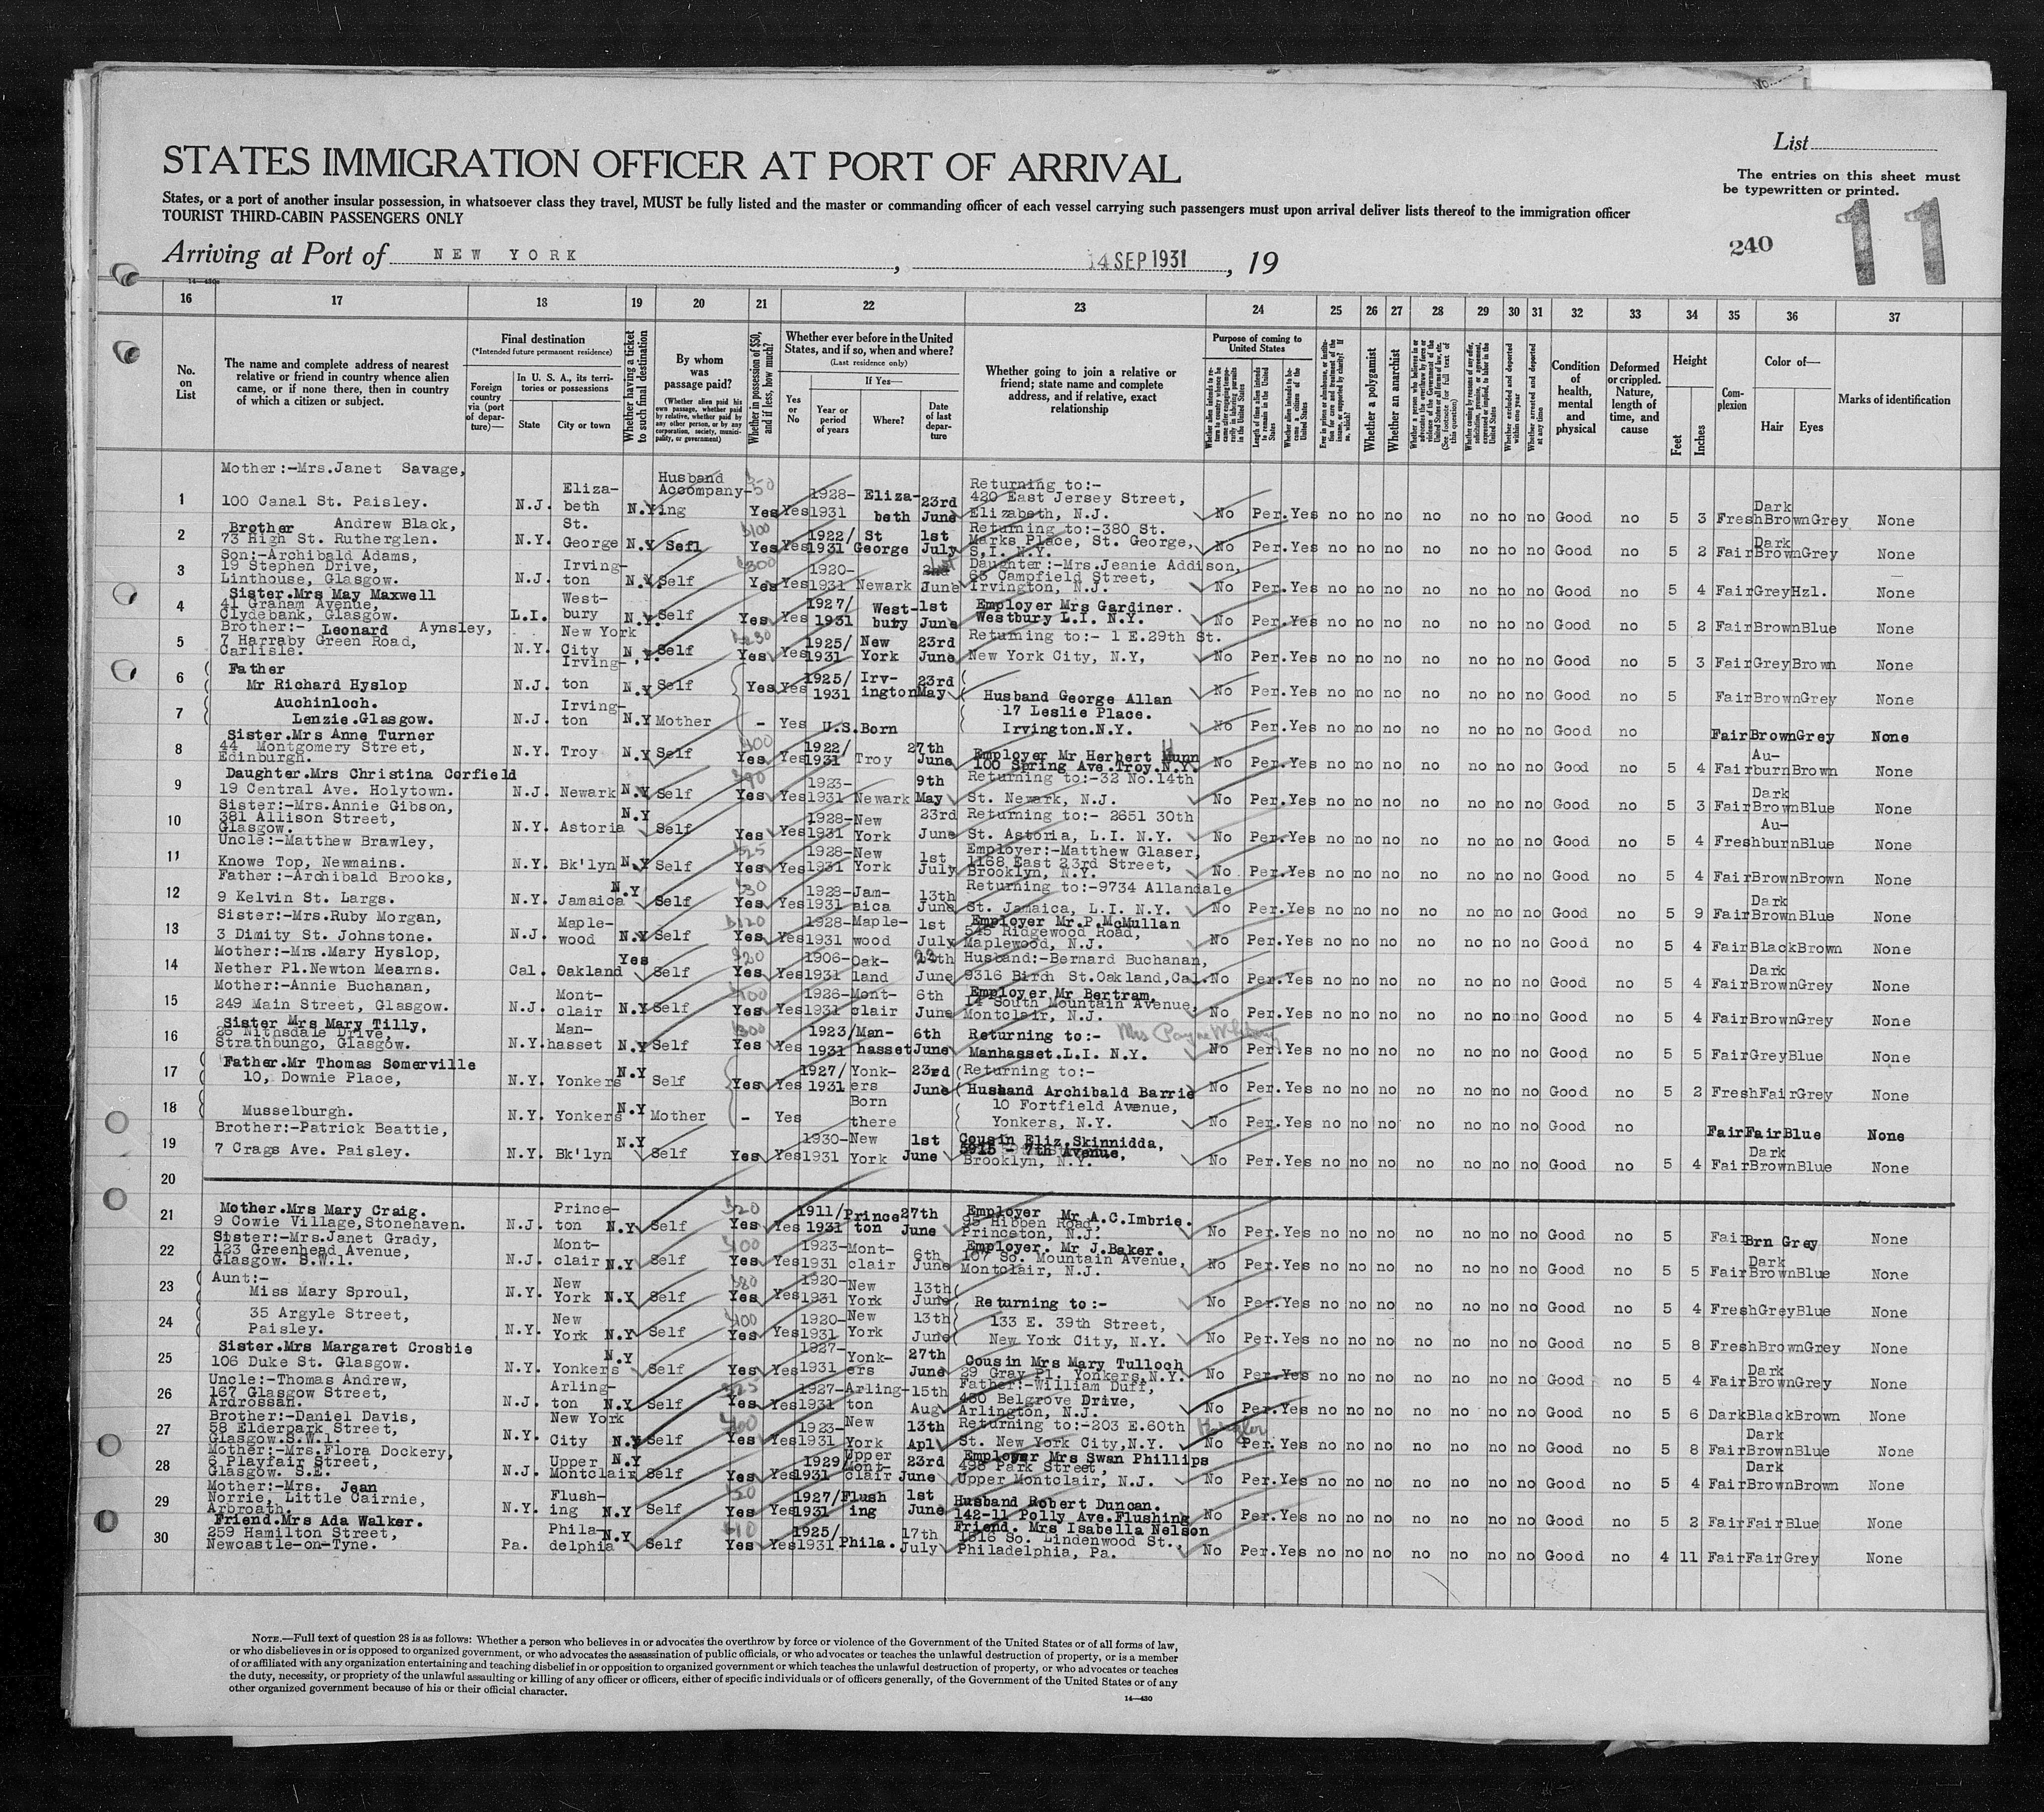 List
The entries on this sheet must
be typewritten or printed.
STATES IMMIGRATION OFFICER AT PORT OF ARRIVAL
States, or a port of another insular possession, in whatsoever class they travel, MUST be fully listed and the master or commanding officer of each vessel carrying such passengers must upon arrival deliver lists thereof to the immigration officer
TOURIST THIRD-CABIN PASSENGERS ONLY
240 11
Arriving at Port of NEW YORK, 14 SEP 1931, 19
16 17 18 19 20 21 22 23 24 25 26 27 28 29 30 31 32 33 34 35 36 37
No. on List
The name and complete address of nearest relative or friend in country whence alien came, or if none there, then in country of which a citizen or subject.
Final destination
(*Intended future permanent residence)
Foreign country via (port of departure)—
In U. S. A., its territories or possessions
State
City or town
Whether having a ticket to such final destination
By whom was passage paid?
(Whether alien paid his own passage, whether paid by relative, whether paid by any other person, or by any corporation, society, municipality, or government)
Whether in possession of $50, and if less, how much?
Whether ever before in the United States, and if so, when and where?
(Last residence only)
Yes or No
If Yes—
Year or period of years
Where?
Date of last departure
Whether going to join a relative or friend; state name and complete address, and if relative, exact relationship
Purpose of coming to United States
Length of time alien intends to remain in the United States
Whether alien intends to become a citizen of the United States
Whether a polygamist
Whether an anarchist
Whether excluded and deported within one year
Whether arrested and deported at any time
Condition of health, mental and physical
Deformed or crippled. Nature, length of time, and cause
Height
Feet
Inches
Complexion
Color of—
Hair
Eyes
Marks of identification
1 Mother:-Mrs.Janet Savage, 100 Canal St. Paisley. N.J. Elizabeth N.Y Husband Accompanying Yes Yes 1928-1931 Elizabeth 23rd June Returning to:- 420 East Jersey Street, Elizabeth, N.J. No Per. Yes no no no no no no no Good no 5 3 Fresh Dark Brown Grey None
2 Brother Andrew Black, 73 High St. Rutherglen. N.Y. St. George N.Y Sefl $100 Yes Yes 1922/1931 St George 1st July Returning to:-380 St. Marks Place, St. George, S.I. N.Y. No Per. Yes no no no no no no no Good no 5 2 Fair Dark Brown Grey None
3 Son:-Archibald Adams, 19 Stephen Drive, Linthouse, Glasgow. N.J. Irvington N.Y. Self $300 Yes Yes 1920-1931 Newark June Daughter:-Mrs.Jeanie Addison, 63 Campfield Street, Irvington, N.J. No Per. Yes no no no no no no no Good no 5 4 Fair Grey Hzl. None
4 Sister.Mrs May Maxwell 41 Graham Avenue, Clydebank, Glasgow. L.I. Westbury N.Y. Self Yes Yes 1927/1931 Westbury 1st June Employer Mrs Gardiner. Westbury L.I. N.Y. No Per. Yes no no no no no no no Good no 5 2 Fair Brown Blue None
5 Brother:- Leonard Aynsley, 7 Harraby Green Road, Carlisle. N.Y. New York City N.Y. Self Yes Yes 1925/1931 New York 23rd June Returning to:- 1 E.29th St. New York City, N.Y, No Per. Yes no no no no no no no Good no 5 3 Fair Grey Brown None
6 Father Mr Richard Hyslop N.J. Irvington N.Y Self Yes Yes 1925/1931 Irvington 23rd May Husband George Allan No Per. Yes no no no no no no no Good no 5 Fair Brown Grey None
7 Auchinloch. Lenzie.Glasgow. N.J. Irvington N.Y Mother - Yes U.S.Born 17 Leslie Place. Irvington.N.Y. No Per. Yes no no no no no no no Good no Fair Brown Grey None
8 Sister.Mrs Anne Turner 44 Montgomery Street, Edinburgh. N.Y. Troy N.Y Self Yes Yes 1922/1931 Troy 27th June Employer Mr Herbert Munn 100 Spring Ave.Troy.N.Y. No Per. Yes no no no no no no no Good no 5 4 Fair Auburn Brown None
9 Daughter.Mrs Christina Corfield 19 Central Ave. Holytown. N.J. Newark N.Y Self Yes Yes 1923-1931 Newark 9th May Returning to:-32 No.14th St. Newark, N.J. No Per. Yes no no no no no no no Good no 5 3 Fair Dark Brown Blue None
10 Sister:-Mrs.Annie Gibson, 381 Allison Street, Glasgow. N.Y. Astoria N.Y Self Yes Yes 1928-1931 New York 23rd June Returning to:- 2651 30th St. Astoria, L.I. N.Y. No Per. Yes no no no no no no no Good no 5 4 Fresh Auburn Blue None
11 Uncle:-Matthew Brawley, Knowe Top, Newmains. N.Y. Bk'lyn N.Y Self Yes Yes 1928-1931 New York 1st July Employer:-Matthew Glaser, 1168 East 23rd Street, Brooklyn, N.Y. No Per. Yes no no no no no no no Good no 5 4 Fair Brown Brown None
12 Father:-Archibald Brooks, 9 Kelvin St. Largs. N.Y. Jamaica N.Y Self Yes Yes 1923-1931 Jamaica 13th June Returning to:-9734 Allandale St. Jamaica, L.I. N.Y. No Per. Yes no no no no no no no Good no 5 9 Fair Dark Brown Blue None
13 Sister:-Mrs.Ruby Morgan, 3 Dimity St. Johnstone. N.J. Maplewood N.Y Self $120 Yes Yes 1928-1931 Maplewood 1st July Employer Mr.P.McMullan 545 Ridgewood Road, Maplewood, N.J. No Per. Yes no no no no no no no Good no 5 4 Fair Black Brown None
14 Mother:-Mrs.Mary Hyslop, Nether Pl.Newton Mearns. Cal. Oakland Yes Self Yes Yes 1906-1931 Oakland June Husband:-Bernard Buchanan, 9316 Birch St.Oakland,Cal. No Per. Yes no no no no no no no Good no 5 4 Fair Dark Brown Grey None
15 Mother:-Annie Buchanan, 249 Main Street, Glasgow. N.J. Montclair N.Y Self Yes Yes 1926-1931 Montclair 6th June Employer Mr Bertram, 14 South Mountain Avenue, Montclair, N.J. No Per. Yes no no no no no no no Good no 5 4 Fair Brown Grey None
16 Sister Mrs Mary Tilly, 26 Nithsdale Drive, Strathbungo, Glasgow. N.Y. Manhasset N.Y Self Yes Yes 1923/1931 Manhasset 6th June Returning to:- Mrs Payne Whitney Manhasset.L.I. N.Y. No Per. Yes no no no no no no no Good no 5 5 Fair Grey Blue None
17 Father.Mr Thomas Somerville 10, Downie Place, N.Y. Yonkers N.Y Self Yes Yes 1927/1931 Yonkers 23rd June Returning to:- Husband Archibald Barrie No Per. Yes no no no no no no no Good no 5 2 Fresh Fair Grey None
18 Musselburgh. N.Y. Yonkers N.Y Mother - Yes Born there 10 Fortfield Avenue, Yonkers, N.Y. No Per. Yes no no no no no no no Good no Fair Fair Blue None
19 Brother:-Patrick Beattie, 7 Crags Ave. Paisley. N.Y. Bk'lyn N.Y Self Yes Yes 1930-1931 New York 1st June Cousin Eliz.Skinnidda, 5915 - 7th Avenue, Brooklyn, N.Y. No Per. Yes no no no no no no no Good no 5 4 Fair Dark Brown Blue None
20
21 Mother.Mrs Mary Craig. 9 Cowie Village,Stonehaven. N.J. Princeton N.Y Self Yes Yes 1911/1931 Princeton 27th June Employer Mr A.C.Imbrie. 95 Hibben Road, Princeton, N.J. No Per. Yes no no no no no no no Good no 5 Fair Brn Grey None
22 Sister:-Mrs.Janet Grady, 123 Greenhead Avenue, Glasgow. S.W.1. N.J. Montclair N.Y Self Yes Yes 1923-1931 Montclair 6th June Employer. Mr J.Baker. 107 So. Mountain Avenue, Montclair, N.J. No Per. Yes no no no no no no no Good no 5 5 Fair Dark Brown Blue None
23 Aunt:- Miss Mary Sproul, N.Y. New York N.Y Self Yes Yes 1920-1931 New York 13th June Returning to:- No Per. Yes no no no no no no no Good no 5 4 Fresh Grey Blue None
24 35 Argyle Street, Paisley. N.Y. New York N.Y Self Yes Yes 1920-1931 New York 13th June 133 E. 39th Street, New York City, N.Y. No Per. Yes no no no no no no no Good no 5 8 Fresh Brown Grey None
25 Sister.Mrs Margaret Crosbie 106 Duke St. Glasgow. N.Y. Yonkers N.Y Self Yes Yes 1927-1931 Yonkers 27th June Cousin Mrs Mary Tulloch 29 Gray Pl. Yonkers,N.Y. No Per. Yes no no no no no no no Good no 5 4 Fair Dark Brown Grey None
26 Uncle:-Thomas Andrew, 167 Glasgow Street, Ardrossan. N.J. Arlington N.Y Self Yes Yes 1927-1931 Arlington 15th Aug Father:-William Duff, 480 Belgrove Drive, Arlington, N.J. No Per. Yes no no no no no no no Good no 5 6 Dark Black Brown None
27 Brother:-Daniel Davis, 58 Elderpark Street, Glasgow.S.W.1. N.Y. New York City N.Y Self Yes Yes 1923-1931 New York 13th Apl Returning to:-203 E.60th St. New York City,N.Y. No Per. Yes no no no no no no no Good no 5 8 Fair Dark Brown Blue None
28 Mother:-Mrs.Flora Dockery, 6 Playfair Street, Glasgow. S.E. N.J. Upper Montclair N.Y Self Yes Yes 1929/1931 Upper Montclair 23rd June Employer Mrs Swan Phillips 498 Park Street, Upper Montclair, N.J. No Per. Yes no no no no no no no Good no 5 4 Fair Dark Brown Brown None
29 Mother:-Mrs. Jean Norrie, Little Cairnie, Arbroath. N.Y. Flushing N.Y Self Yes Yes 1927/1931 Flushing 1st June Husband Robert Duncan. 142-11 Polly Ave.Flushing No Per. Yes no no no no no no no Good no 5 2 Fair Fair Blue None
30 Friend.Mrs Ada Walker. 259 Hamilton Street, Newcastle-on-Tyne. Pa. Philadelphia N.Y Self Yes Yes 1925/1931 Phila. 17th July Friend. Mrs Isabella Nelson 1516 So. Lindenwood St., Philadelphia, Pa. No Per. Yes no no no no no no no Good no 4 11 Fair Fair Grey None
NOTE.—Full text of question 28 is as follows: Whether a person who believes in or advocates the overthrow by force or violence of the Government of the United States or of all forms of law,
or who disbelieves in or is opposed to organized government, or who advocates the assassination of public officials, or who advocates or teaches the unlawful destruction of property, or is a member
of or affiliated with any organization entertaining and teaching disbelief in or opposition to organized government or which teaches the unlawful destruction of property, or who advocates or teaches
the duty, necessity, or propriety of the unlawful assaulting or killing of any officer or officers, either of specific individuals or of officers generally, of the Government of the United States or of any
other organized government because of his or their official character.
14—430